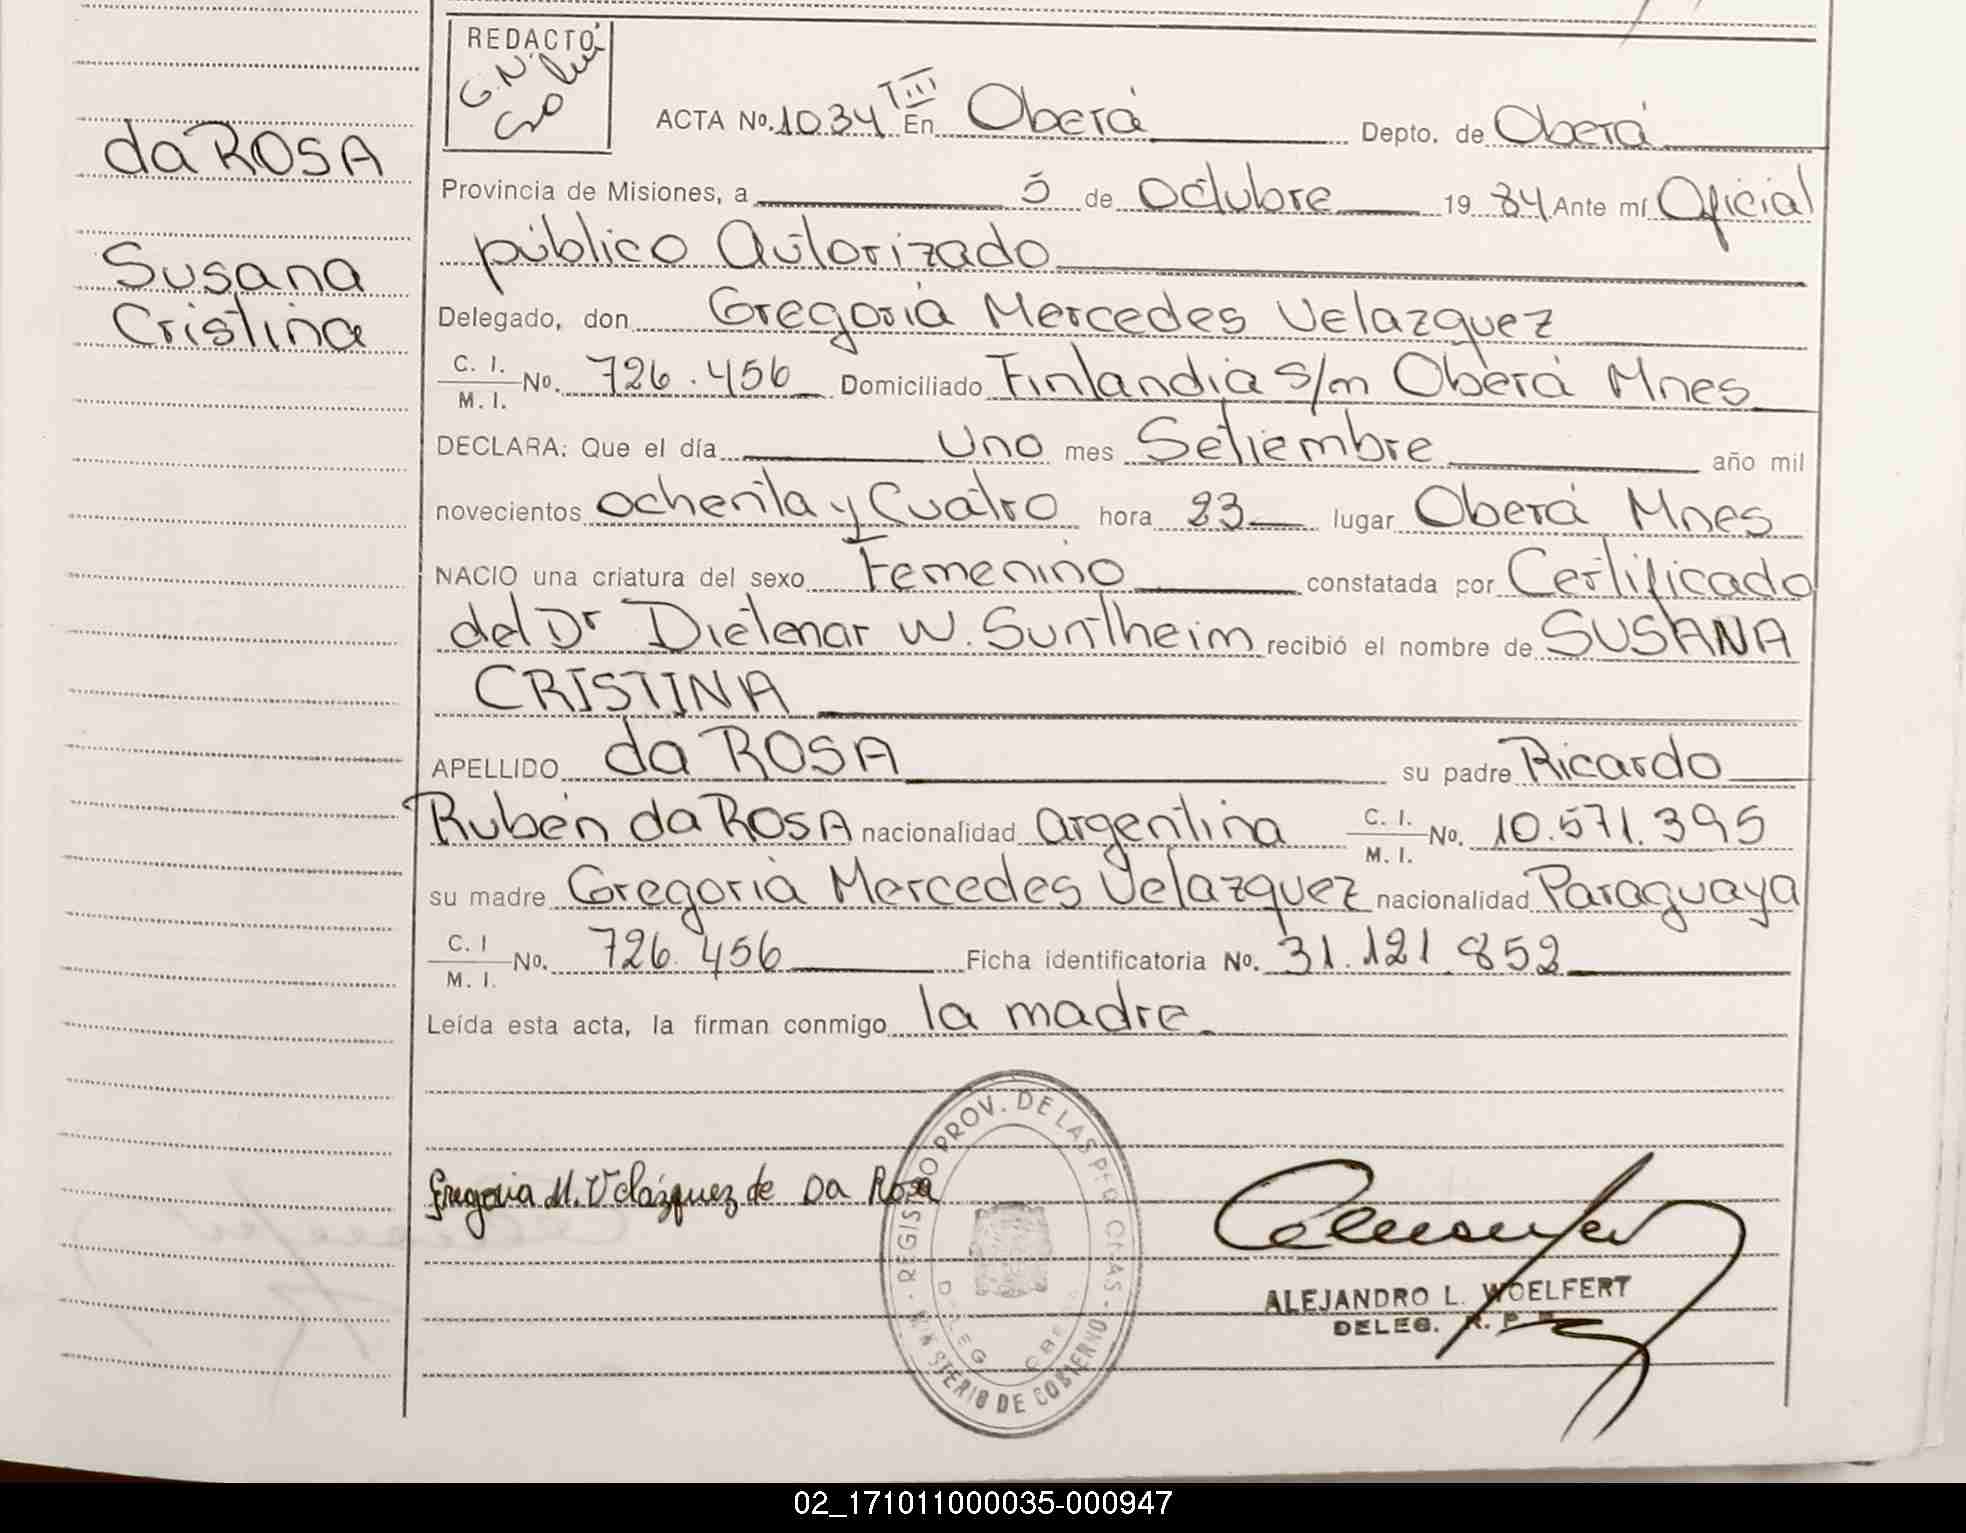 REDACTO
ACTA No. 1034 TIII En Oberá Depto. de Oberá
da ROSA
Provincia de Misiones, a 5 de Octubre 19 84 Ante mí Oficial
público Autorizado
Susana
Cristina
Delegado, don Gregoria Mercedes Velazquez
C. I.
M. I. No. 726.456 Domiciliado Finlandia s/m Oberá Mnes
DECLARA: Que el día uno mes Setiembre año mil
novecientos ochenta y Cuatro hora 23 lugar Oberá Mnes
NACIO una criatura del sexo Femenino constatada por Certificado
del Dr Dietenar W. Suntheim recibió el nombre de SUSANA
CRISTINA
APELLIDO da ROSA su padre Ricardo
Rubén da ROSA nacionalidad argentina C. I.
M. I. No. 10.571.395
su madre Gregoria Mercedes Velazquez nacionalidad Paraguaya
C. I
M. I. No. 726.456 Ficha identificatoria No. 31.121.852
Leída esta acta, la firman conmigo la madre.
Gregoria M. Velázquez de Da Rosa
REGISTRO PROV. DE LAS PERSONAS - MINISTERIO DE GOBIERNO -
ALEJANDRO L. WOELFERT
DELEG. R. P.
02_171011000035-000947